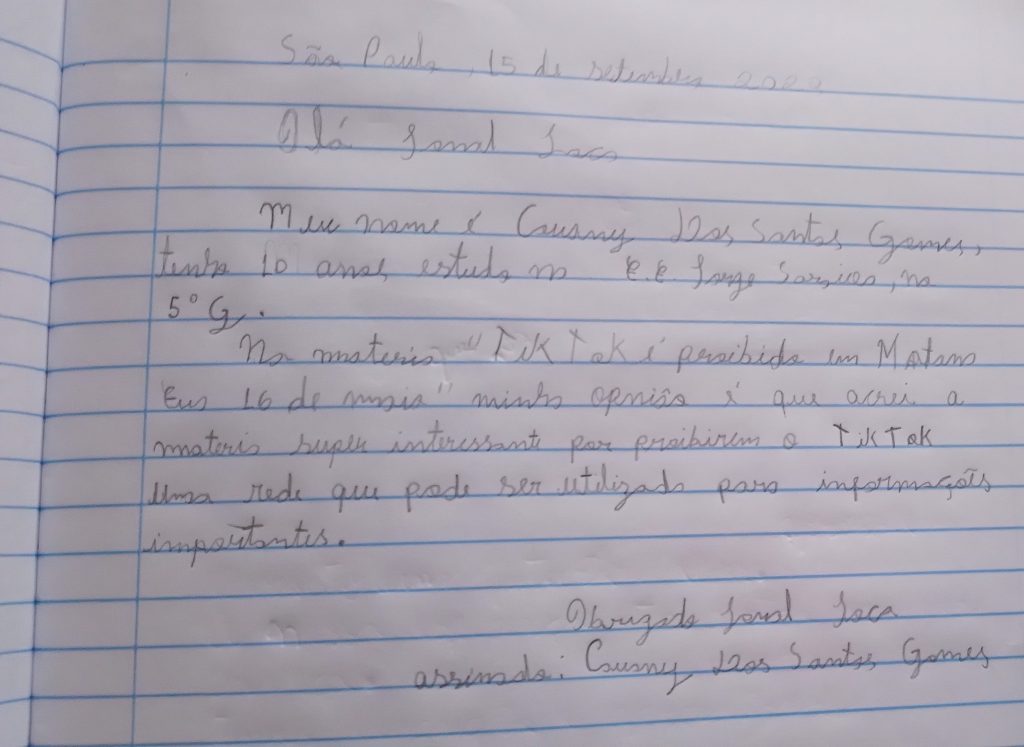 São Paulo, 15 de setembro
Olá Jornal Joca
Meu nome é Dos Santos Gomes,
tenho 10 anos, estudo na E.E Jorge no
5° G.
Na materia "TikTok é proibido em
16 de maio" minha opnião é que acrei a
materia super interessante por proibirem o TikTok
uma rede que pode ser utilizada para informações
importantes.
Obrigado Jornal Joca
assinado: Dos Santos Gomes